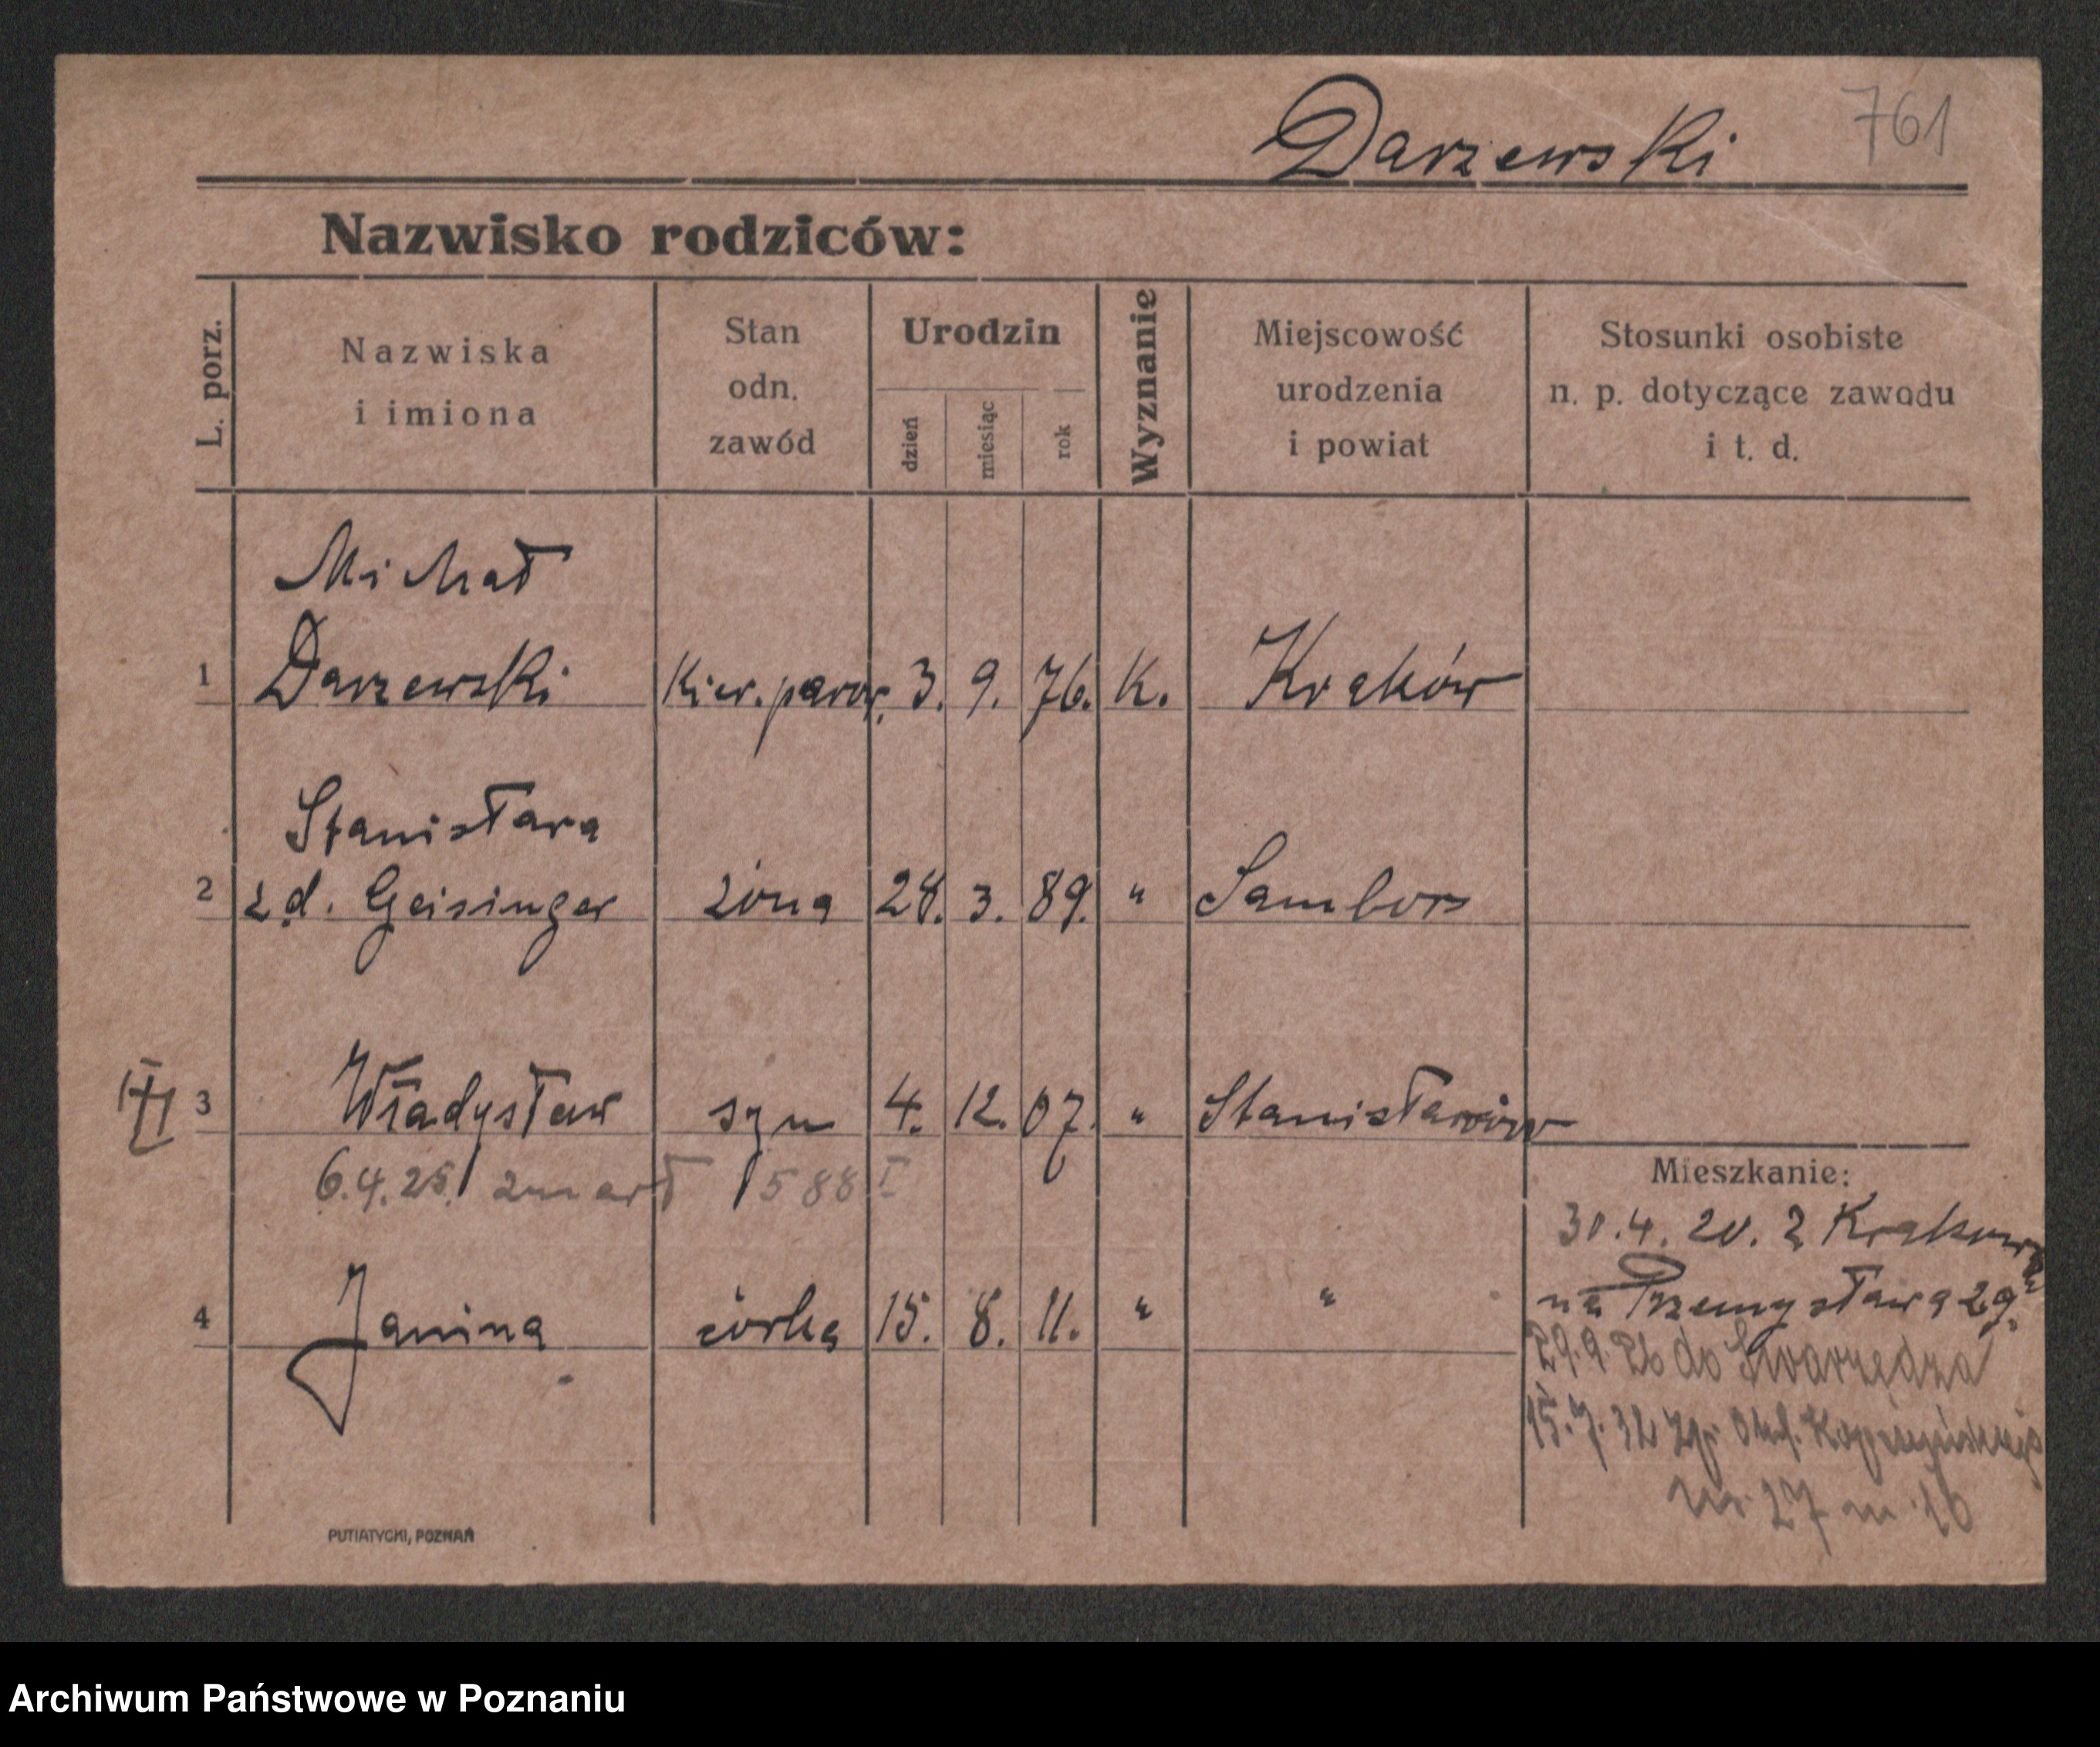 Darzewski 761
Nazwisko rodziców:
L. porz.
Nazwiska
i imiona
Stan
odn.
zawód
Urodzin
dzień
miesiąc
rok
Wyznanie
Miejscowość
urodzenia
i powiat
Stosunki osobiste
n. p. dotyczące zawodu
i t. d.
Michał
1 Darzewski Kier. parow. 3. 9. 76. K. Kraków
Stanisława
2 z d. Geisinger żona 28. 3. 89. " Sambor
3 Władysław syn 4. 12. 07. " Stanisławów
6.4.25. zmarł 588 I
Mieszkanie:
30.4.20. z Krakowa
4 Janina córka 15. 8. 11. " "
na Przemysława 29.
29.9.26 do Swarzędza
15.7.32
nr. 27 m. 16
PUTIATYCKI, POZNAŃ
Archiwum Państwowe w Poznaniu